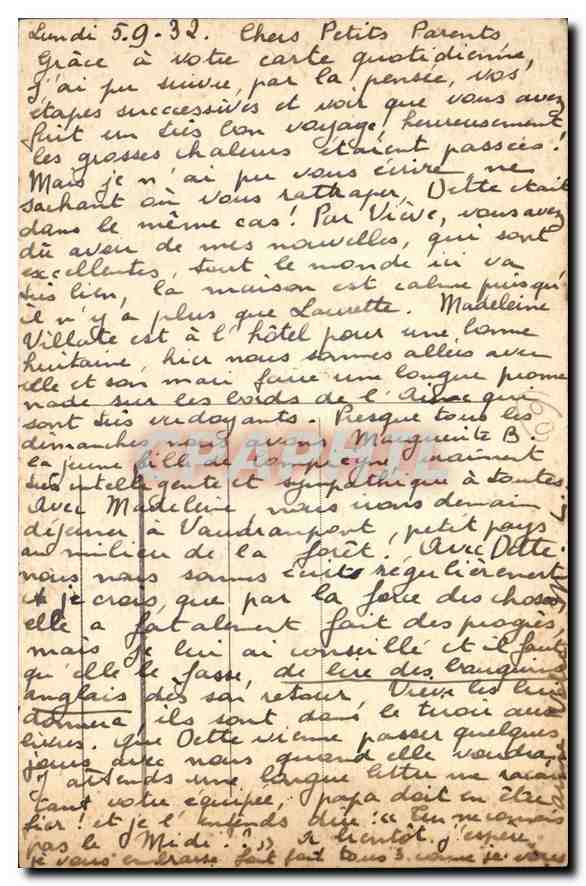 Lundi 5.9.32. Chers Petits Parents
Grâce à votre carte quotidienne,
j'ai pu suivre, par la pensée, vos
étapes successives et voir que vous avez
fait un très bon voyage, heureusement
les grosses chaleurs étaient passées !
Mais je n'ai pu vous écrire, ne
sachant où vous rattraper, Dette était
dans le même cas ! Par Viève, vous avez
dû avoir de mes nouvelles, qui sont
excellentes, tout le monde ici va
très bien, la maison est calme puisqu'
il n'y a plus que Laurette. Madeleine
Villate est à l'hôtel pour une bonne
huitaine, hier nous sommes allées avec
elle et son mari faire une longue prome
nade sur les bords de l' qui
sont très verdoyants. Presque tous les
dimanches nous avons Marguerite B.
la jeune fille de Compiègne, vraiment
très intelligente et sympathique à toutes.
Avec Madeleine, nous irons demain
déjeuner à petit pays
au milieu de la forêt. Avec Dette
nous nous sommes écrit régulièrement
et je crois que par la force des choses
elle a fatalement fait des progrès,
mais je lui ai conseillé et il faut
qu'elle le fasse, de lire des bouquins
anglais dès son retour, Viève les lui
donnera, ils sont dans le tiroir aux
livres. Que Dette vienne passer quelques
jours avec nous quand elle voudra.
J'attends une longue lettre me racon
tant votre équipée, papa doit en être
fier ! et je l'entends dire : "Tu ne connais
pas le Midi ?" À bientôt j'espère,
je vous embrasse fort fort tous 3 comme je vous